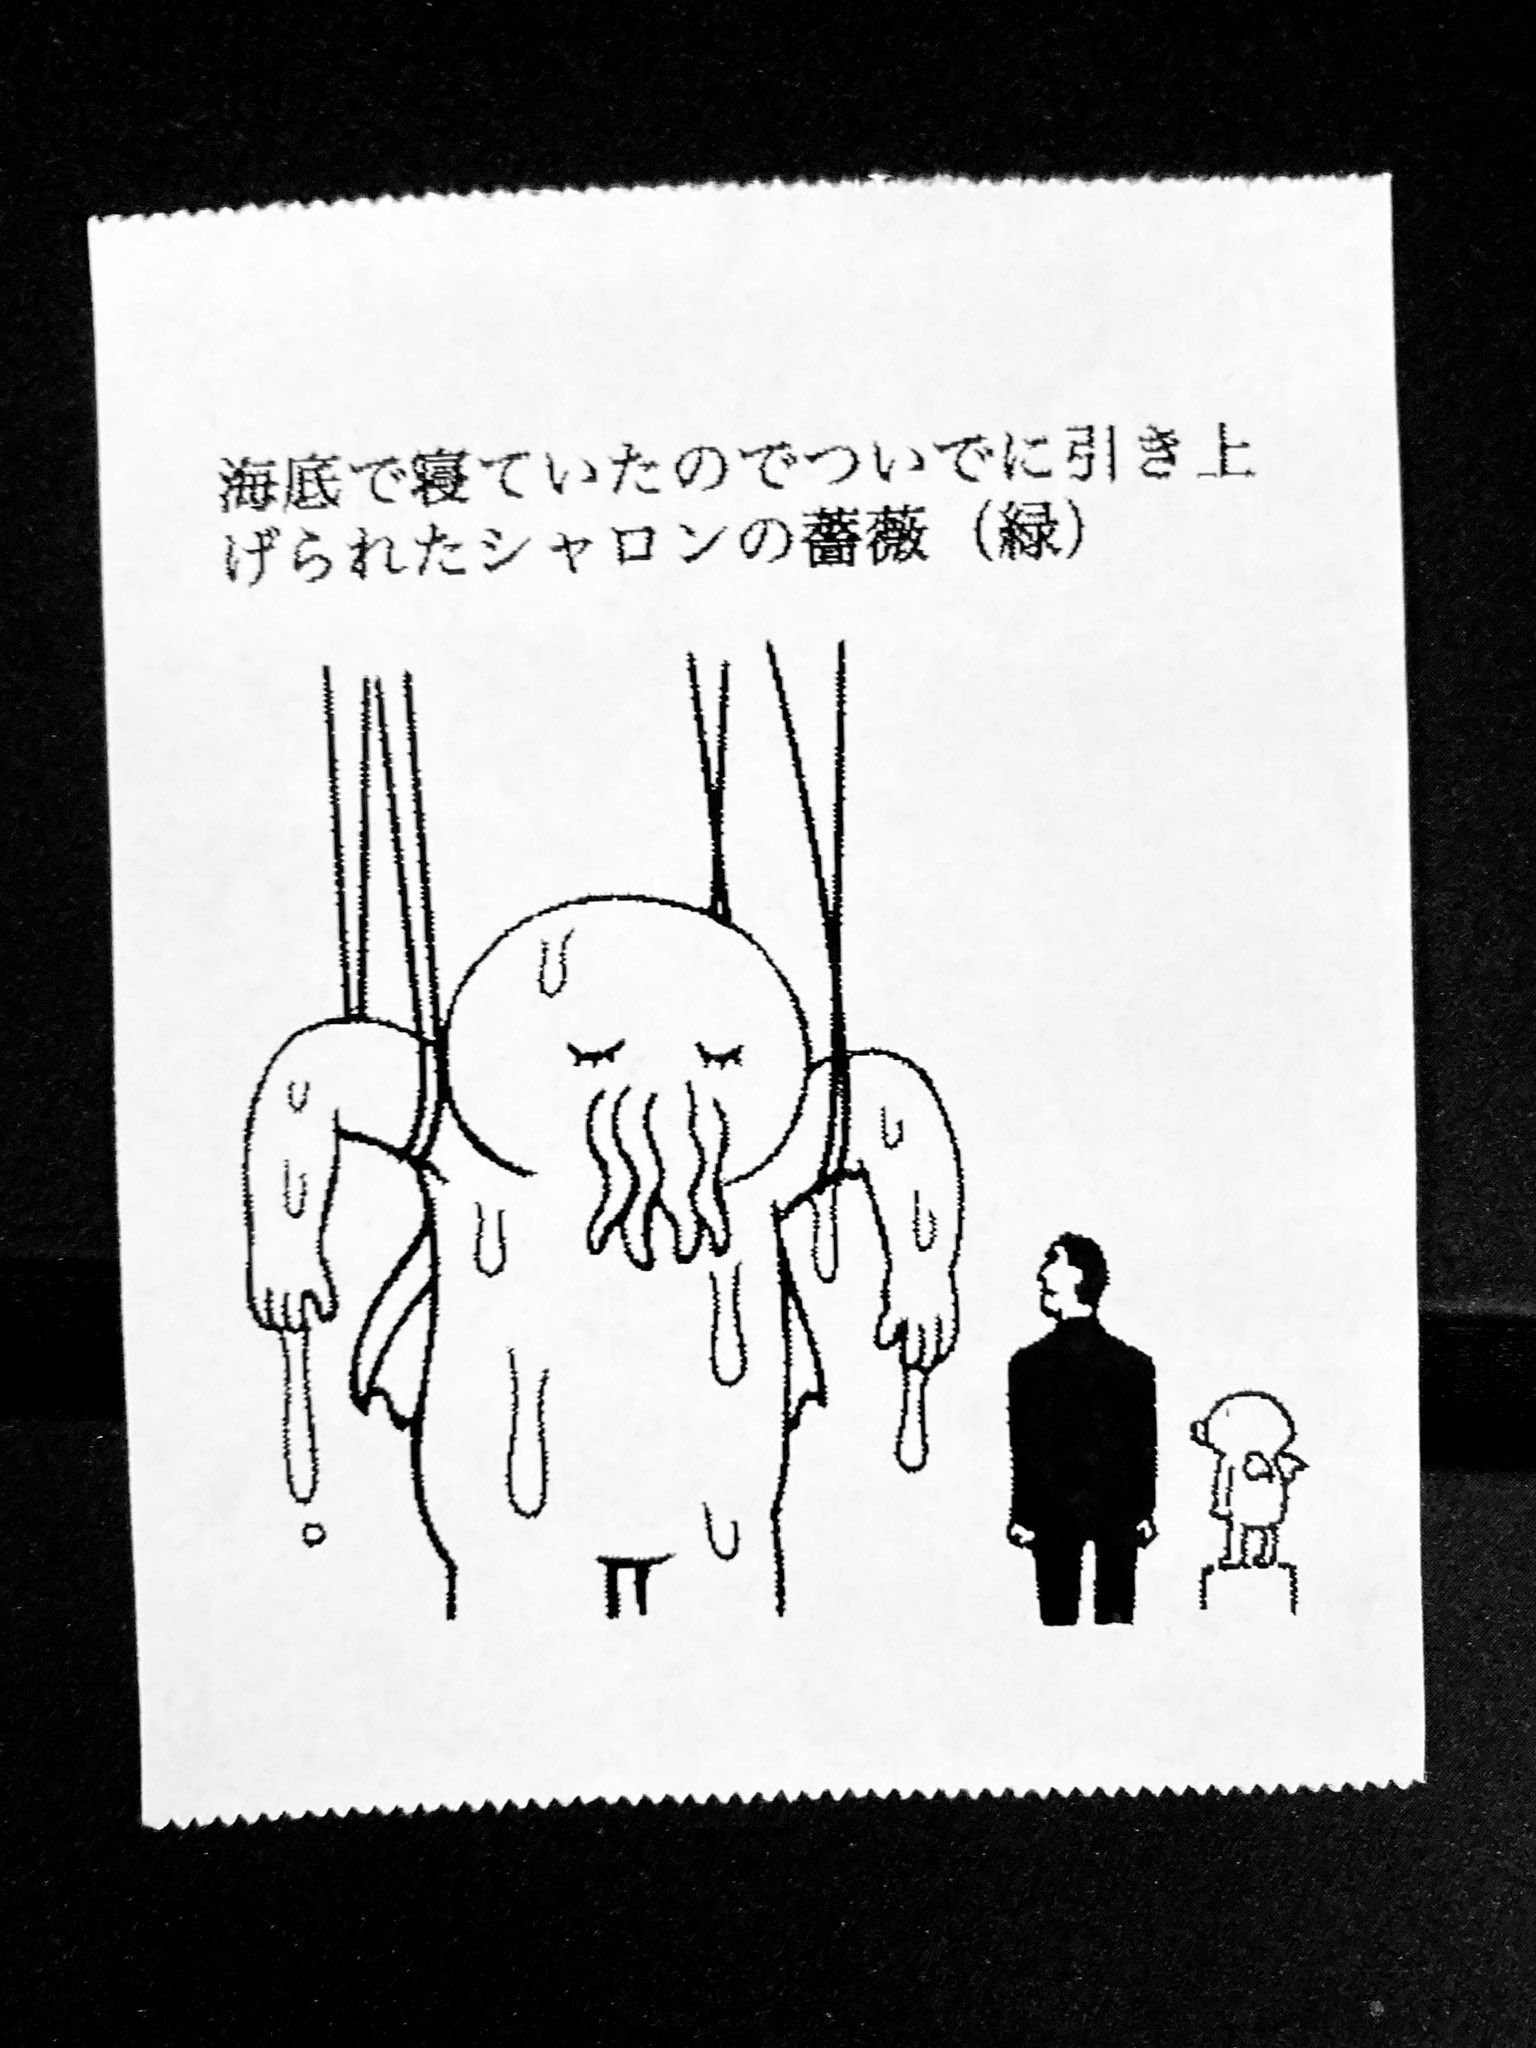 海底で寝ていたのでついでに引き上
げられたシャロンの薔薇（緑）